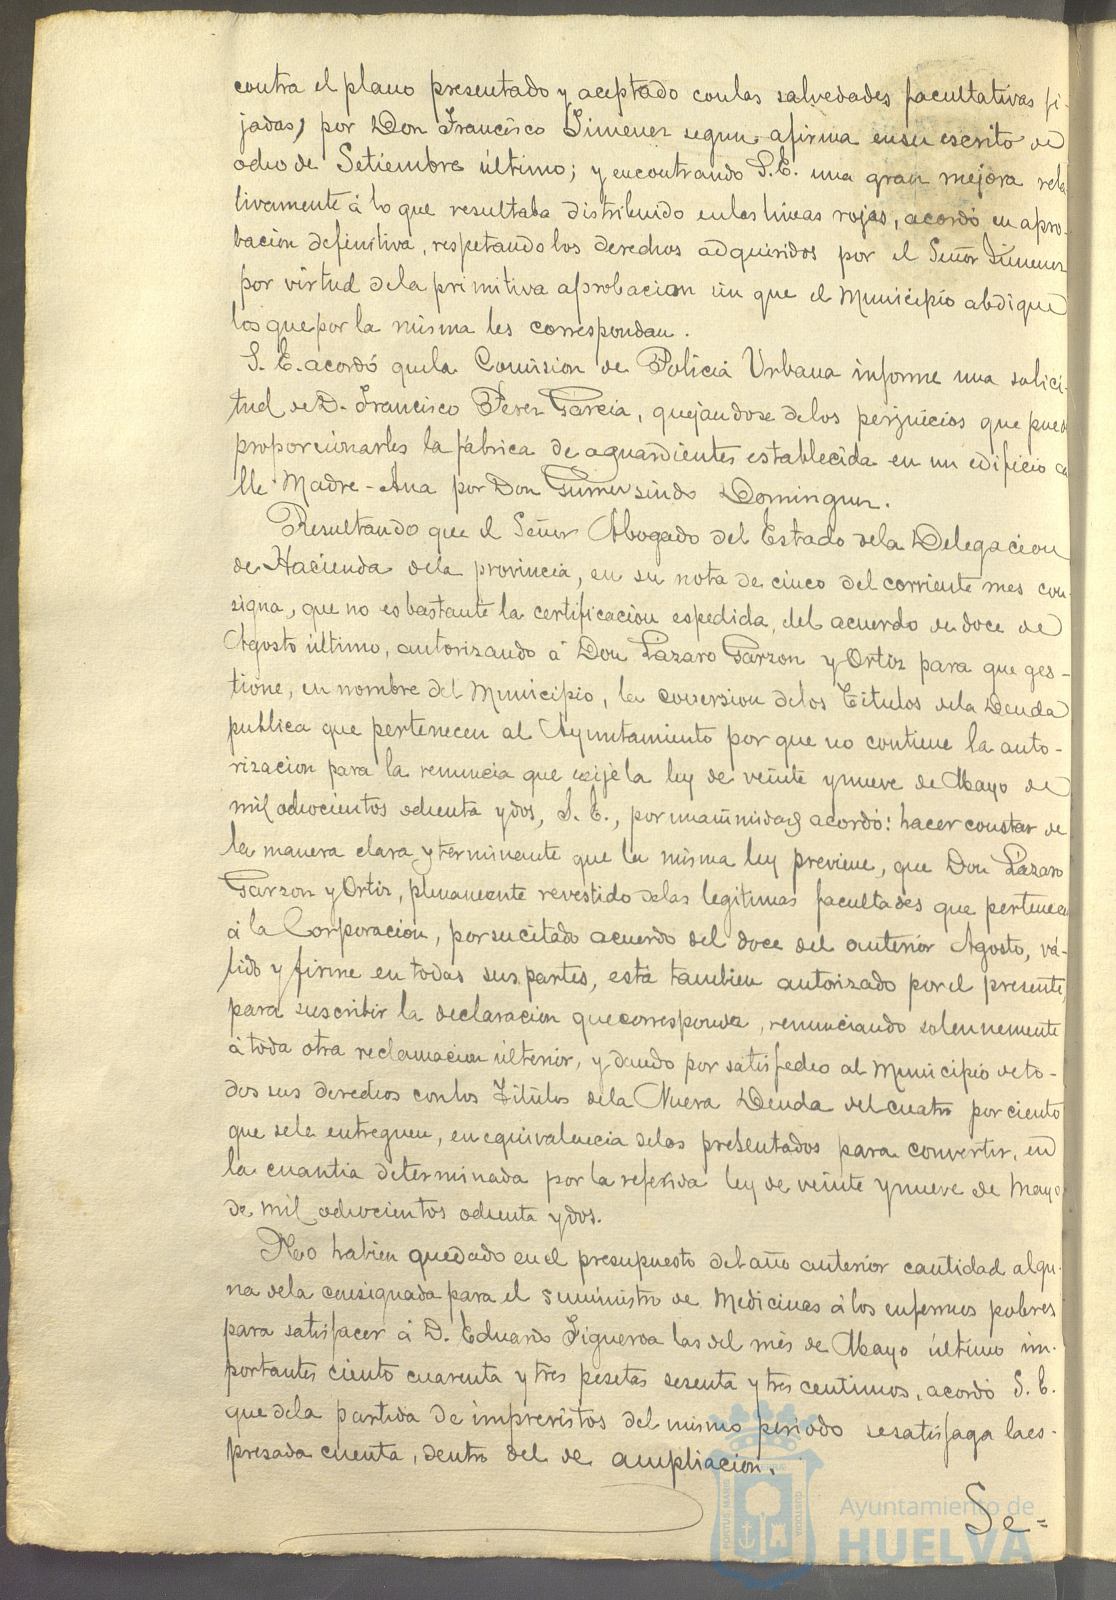 contra el plano presentado y aceptado con las salvedades facultativas fi-
jadas, por Don Francisco Jimenez segun afirma en su escrito de
ocho de Setiembre último; y encontrando S.E. una gran mejora rela
tivamente á lo que resultaba distribuido en las líneas rojas, acordó su apro-
bacion definitiva, respetando los derechos adquiridos por el Señor Jimenez
por virtud de la primitiva aprobacion sin que el Municipio abdique
los que por la misma les correspondan.
S. E. acordó que la Comision de Policia Urbana informe una solici-
tud de D. Francisco Perez Garcia, quejandose de los perjuicios que pued
proporcionarles la fábrica de aguardientes establecida en un edificio ca
lle Madre-Ana por Don Gumersindo Dominguez.
Resultando que el Señor Abogado del Estado de la Delegacion
de Hacienda de la provincia, en su nota de cinco del corriente mes con
signa, que no es bastante la certificacion espedida, del acuerdo de doce de
Agosto último, autorizando á Don Lázaro Garzon y Ortiz para que ges-
tione, en nombre del Municipio, la coversion de los Titulos de la Deuda
publica que pertenecen al Ayuntamiento por que no contiene la auto-
rizacion para la renuncia que exije la ley de veinte y nueve de Mayo de
mil ochocientos ochenta y dos, S. E., por unanimidad acordó: hacer constar de
la manera clara y terminante que la misma ley previene, que Don Lázaro
Garzon y Ortiz, plenamente revestido de las legitimas facultades que pertenecen
á la Corporacion, por su citado acuerdo del doce del anterior Agosto, vá-
lido y firme en todas sus partes, está tambien autorizado por el presente,
para suscribir la declaracion que corresponda, renunciando solennemente
á toda otra reclamacion ulterior, y dando por satisfecho al Municipio de to-
dos sus derechos con los Titulos de la Nueva Deuda del cuatro por ciento
que se le entreguen, en equivalencia de los presentados para convertir, en
la cuantia determinada por la referida ley de veinte y nueve de Mayo
de mil ochocientos ochenta y dos.
No habien quedado en el presupuesto del año anterior cantidad algu-
na de la consignada para el suministro de Medicinas á los enfermos pobres
para satisfacer á D. Eduardo Figueroa las del mes de Mayo último im-
portantes ciento cuarenta y tres pesetas sesenta y tres centimos, acordó S. E.
que de la partida de imprevistos del mismo periodo se satisfaga la es-
presada cuenta, dentro del de ampliacion.
Se=
Ayuntamiento de
HUELVA